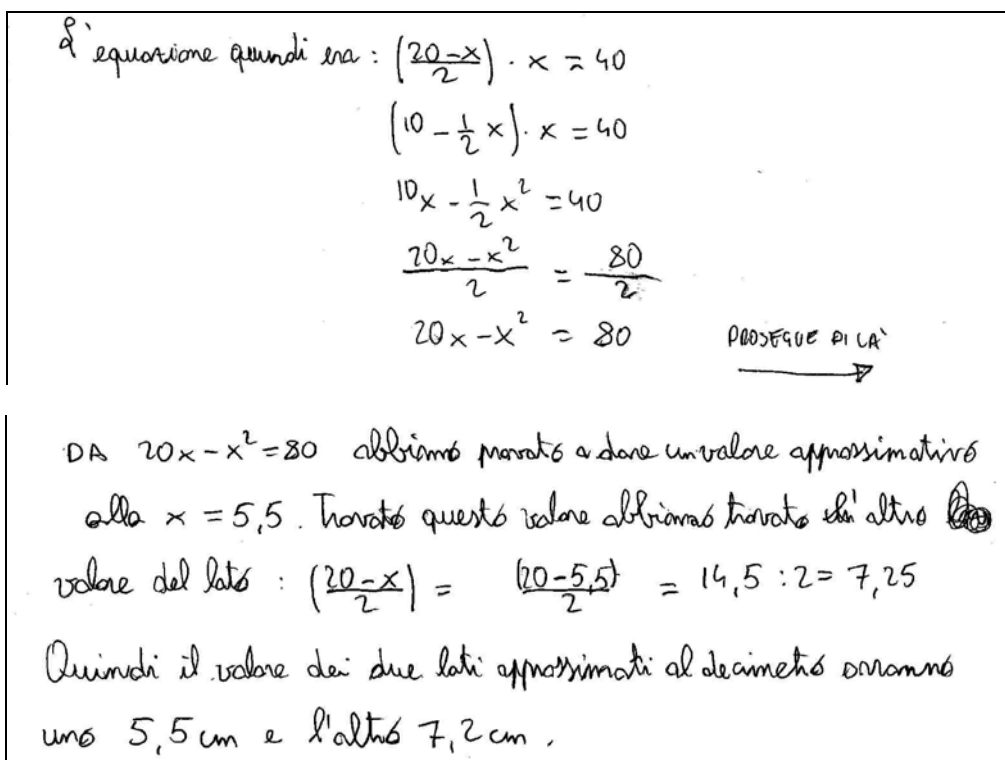 L'equazione quindi era : (20-x/2) · x = 40
(10 - 1/2 x) · x = 40
10x - 1/2 x² = 40
20x - x²/2 = 80/2
20x - x² = 80 PROSEGUE DI LA'
DA 20x - x² = 80 abbiamo provato a dare un valore approssimativo
alla x = 5,5. Trovato questo valore abbiamo trovato altro
valore del lato : (20-x/2) = (20-5,5)/2 = 14,5 : 2 = 7,25
Quindi il valore dei due lati approssimati al decimetro
uno 5,5 cm e l'altro 7,2 cm.